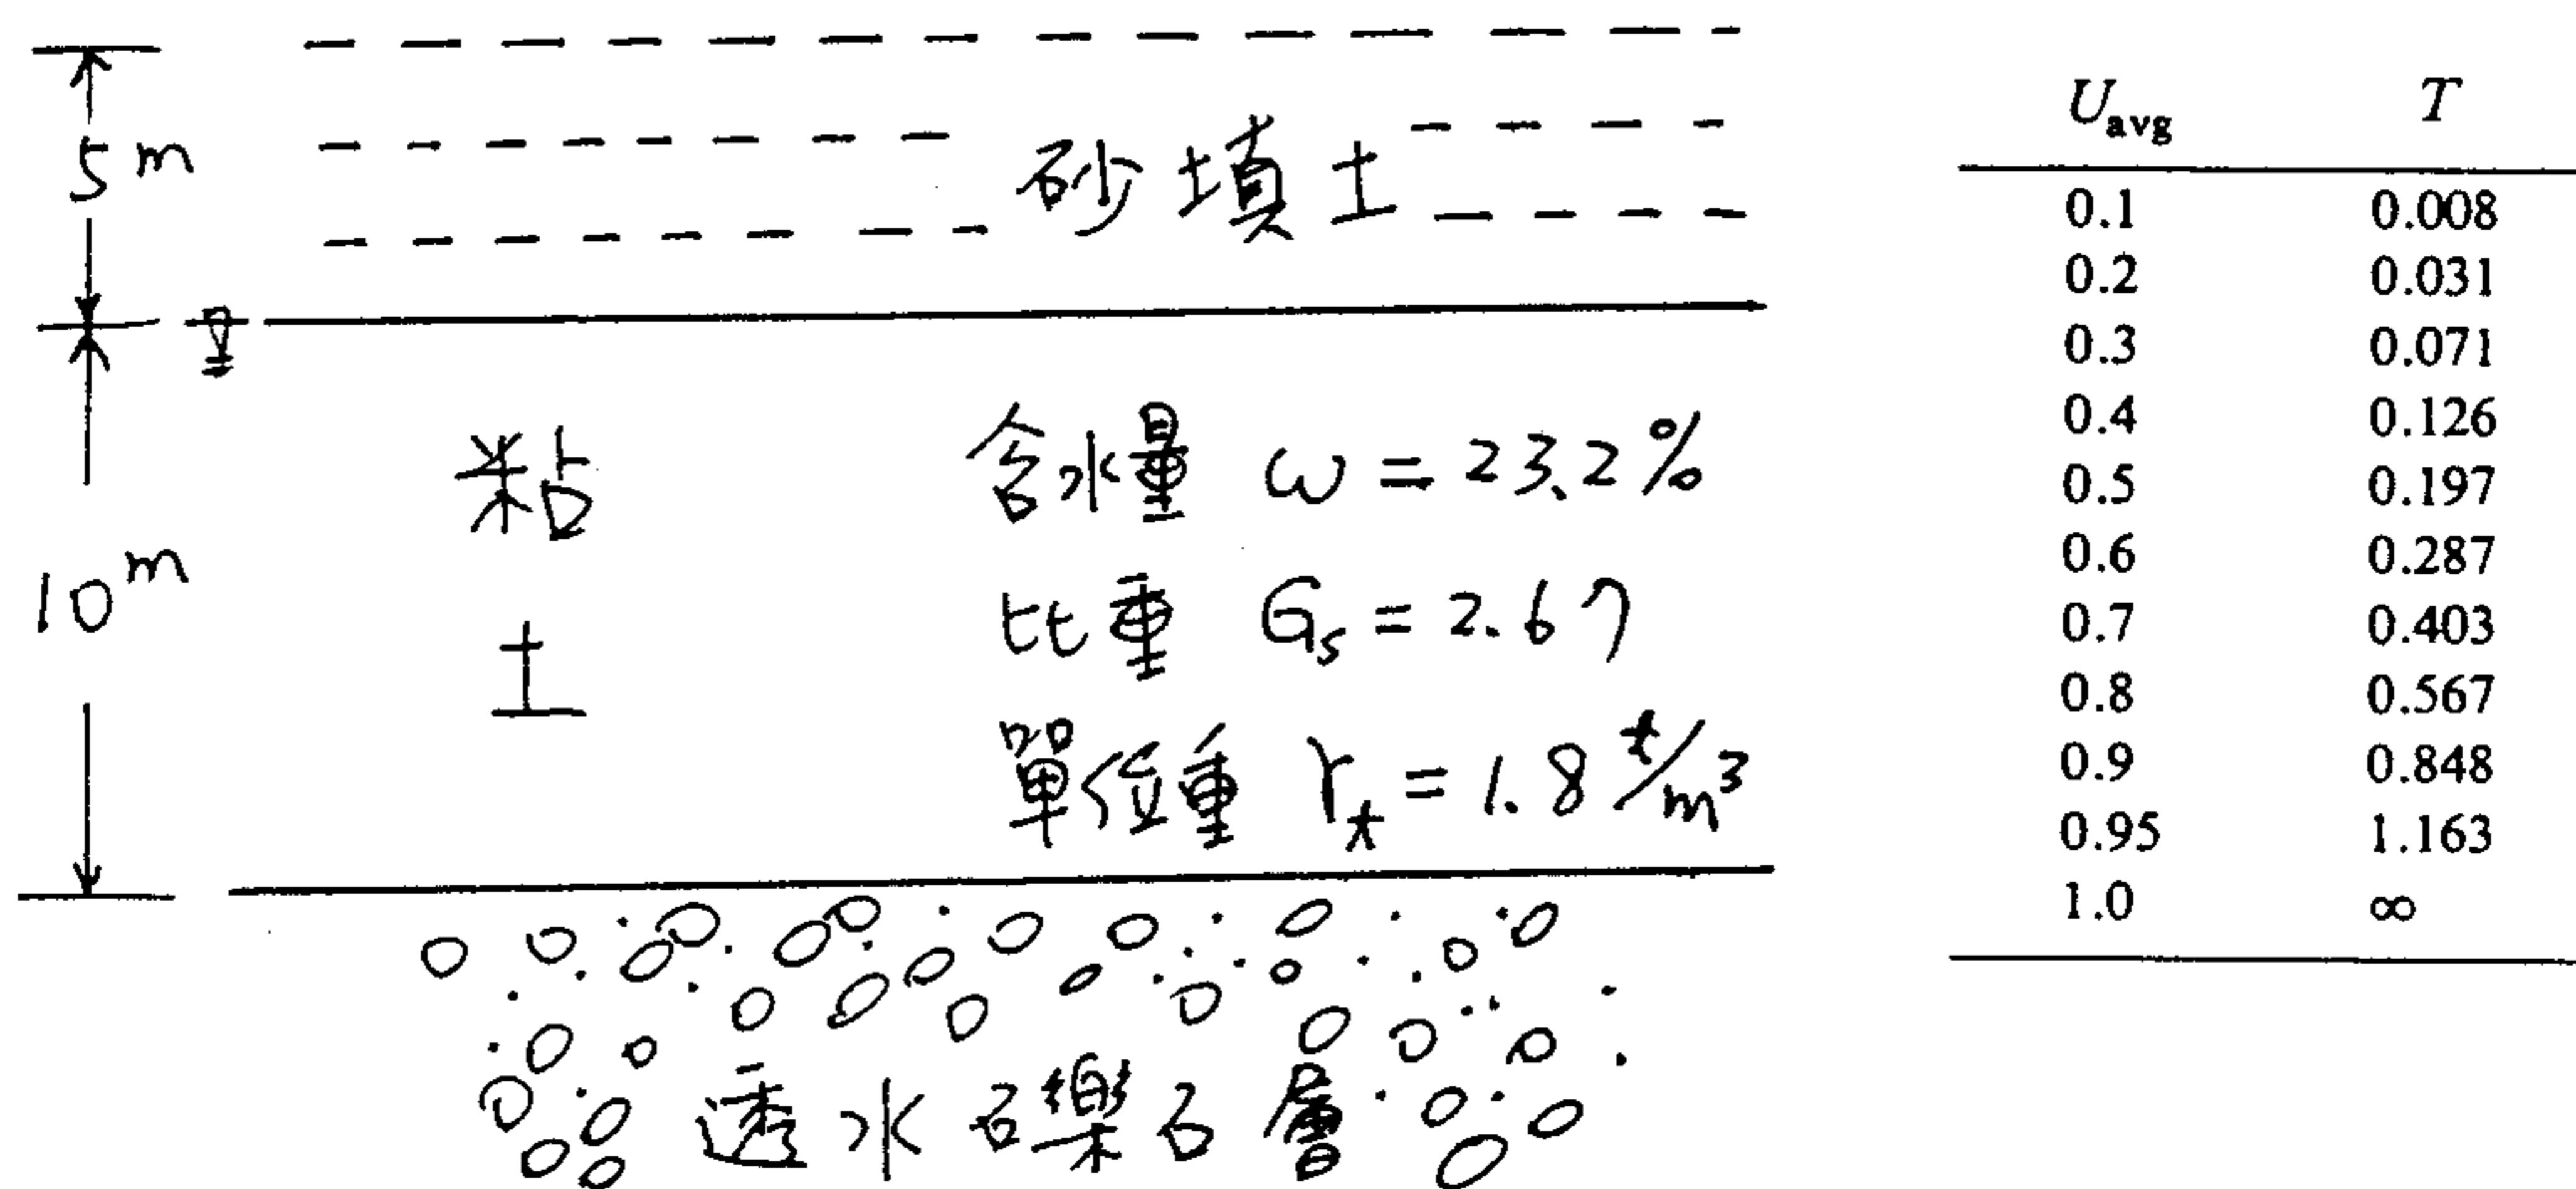 5m
砂填土
10m
粘土
含水量 ω = 23.2%
比重 Gs = 2.67
單位重 γt = 1.8 t/m³
透水礫石層
Uavg T
0.1 0.008
0.2 0.031
0.3 0.071
0.4 0.126
0.5 0.197
0.6 0.287
0.7 0.403
0.8 0.567
0.9 0.848
0.95 1.163
1.0 ∞